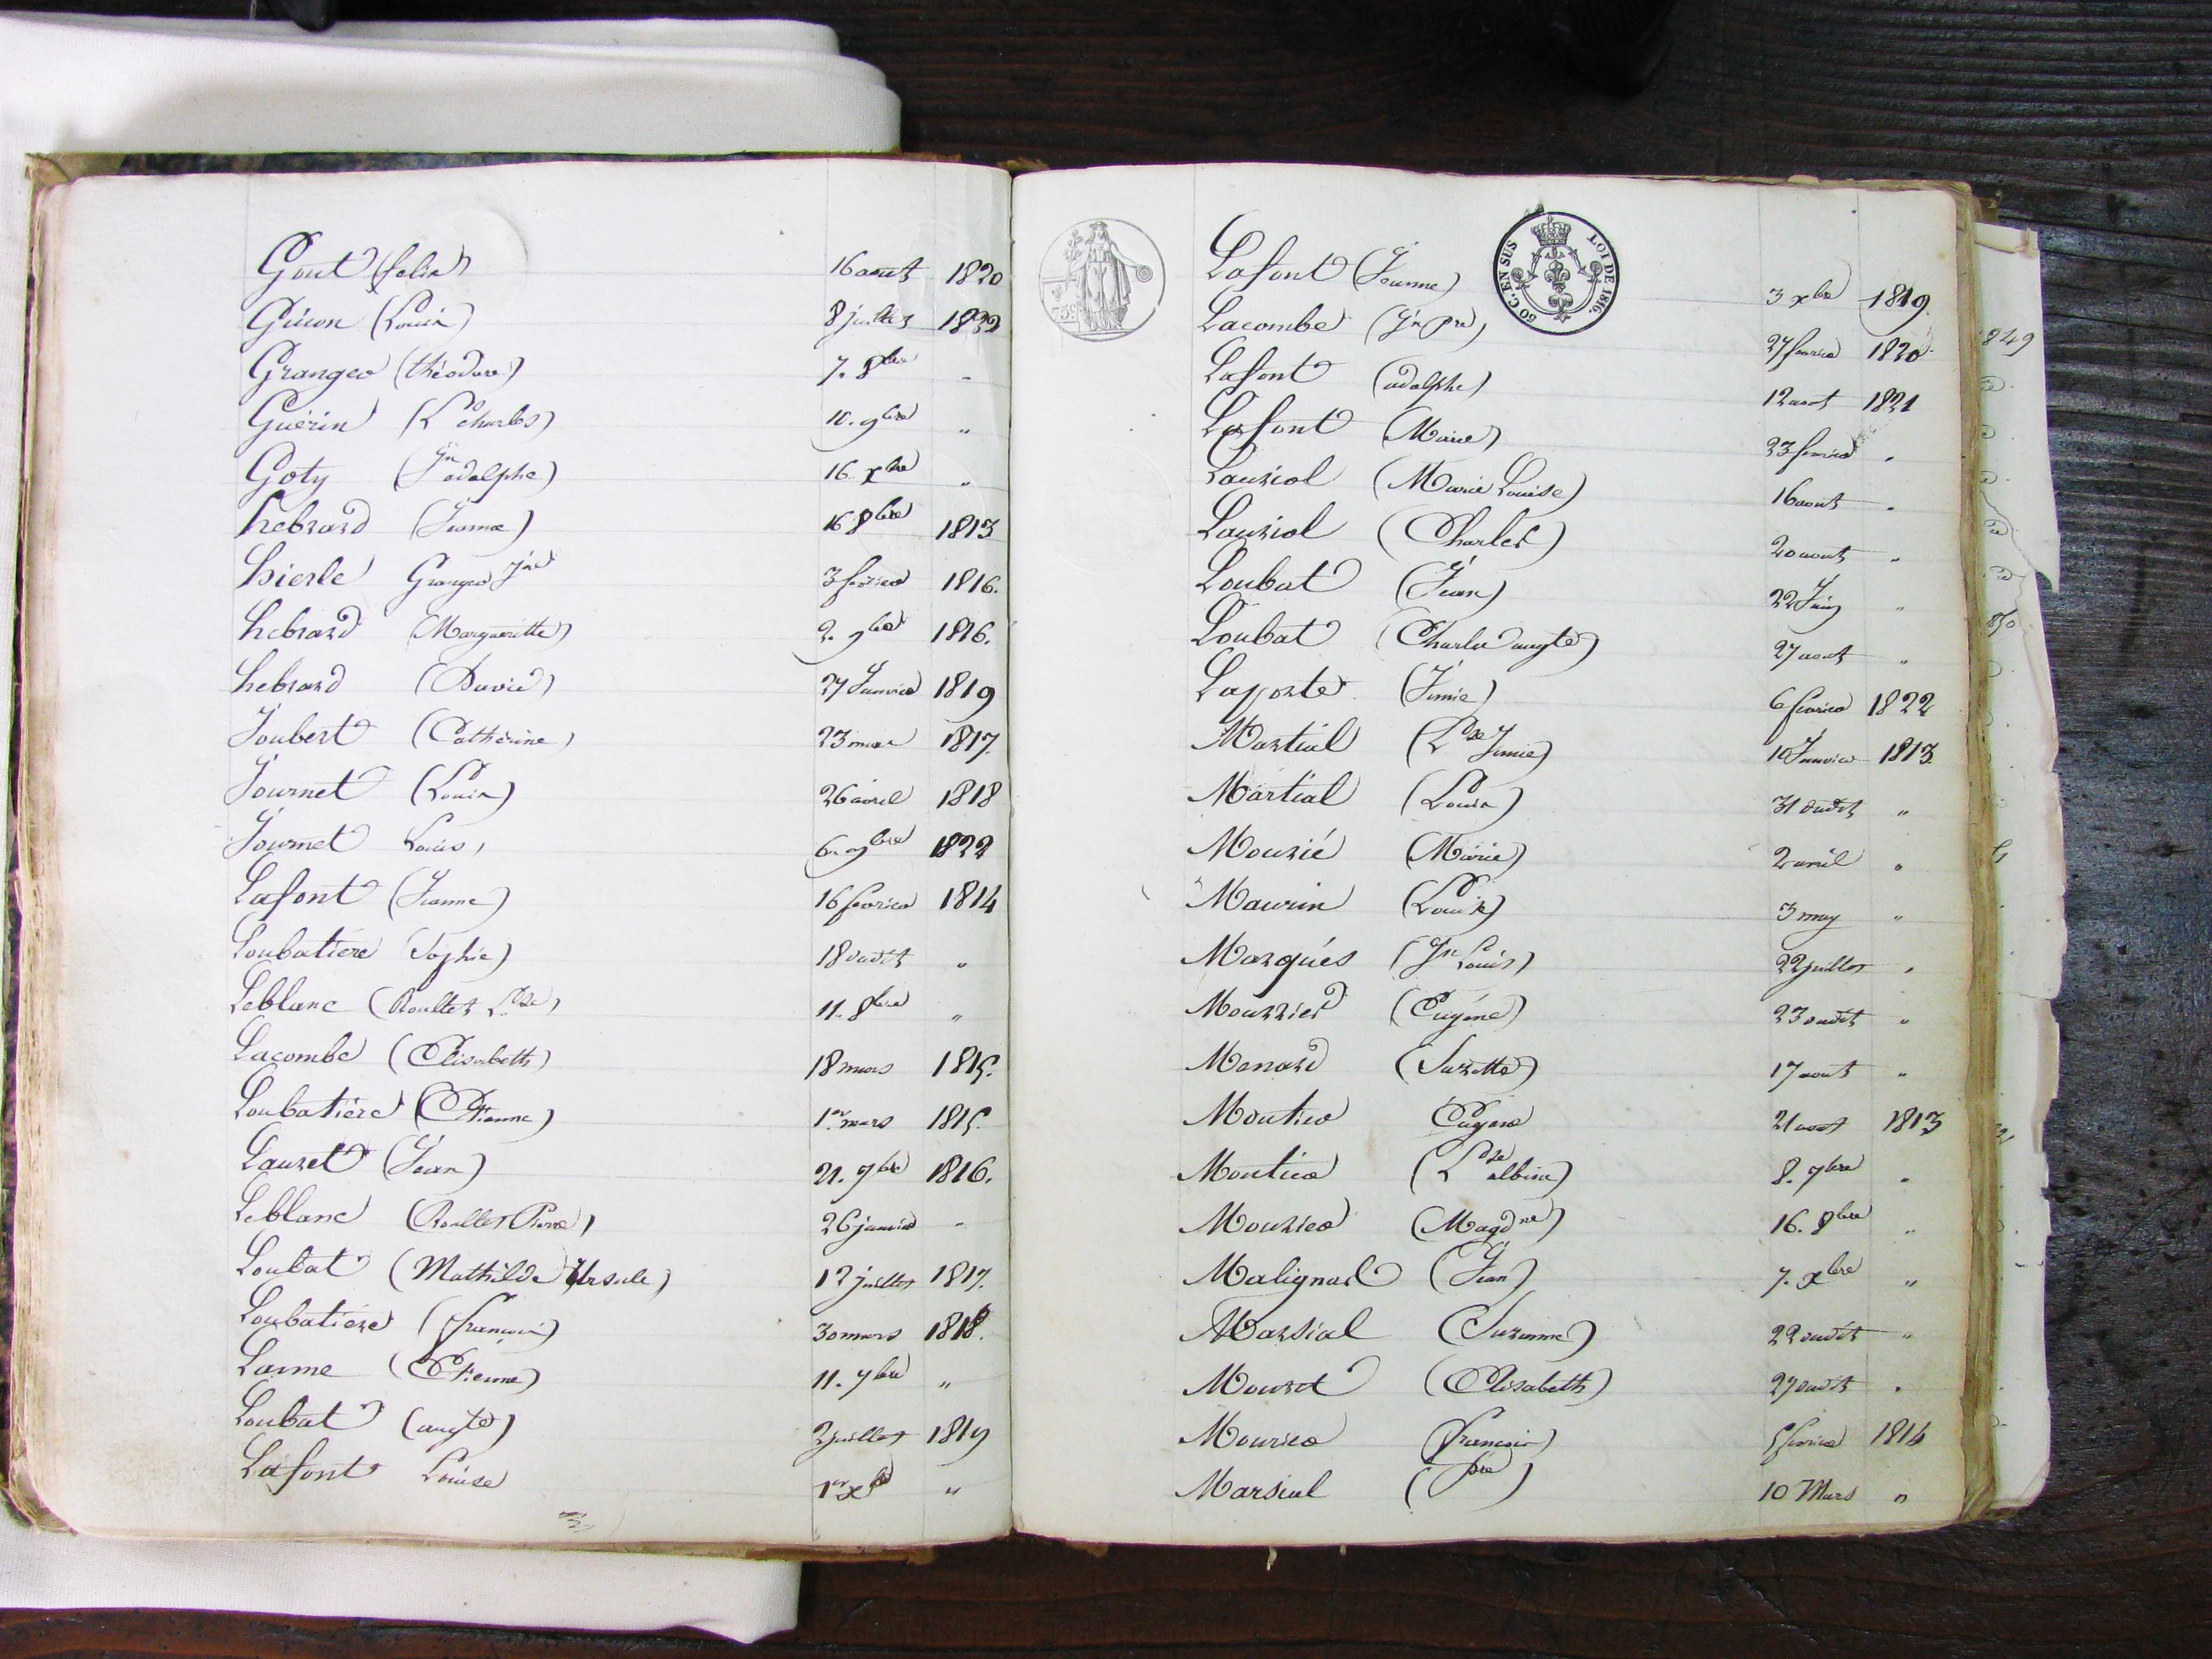 Gout (felix) 16 aout 1820
Guion (Louis) 8 juillet 1822
Granger (théodore) 7. 8bre -
Guérin (L Charles) 10. 9bre "
Goty (Jn adolphe) 16 xbre "
hebrard (Jeanne) 16 8bre 1813
hierle Granger Jne 3 fevrier 1816.
hebrard (Margueritte) 2. 9bre 1816.
hebrard (David) 27 Janvier 1819
Joubert (Catherine) 23 mars 1817.
Journet (Louis) 26 avril 1818
Journet Louis, 6. 9bre 1822
Lafont (Jeanne) 16 fevrier 1814
Loubatiere (Sophie) 18 oudit "
Leblanc (Roultet Lse) 11. 8bre "
Lacombe (Elisabeth) 18 mars 1815.
Loubatiére (Etienne) 1er mars 1815.
Lauret (Jean) 21. 9bre 1816.
Leblanc (Roultet Pierre) 26 janvier -
Loubat (Mathilde Ursule) 12 juillet 1817.
Loubatiére (françois) 30 mars 1818.
Larme (Etienne) 11. 7bre "
Loubat (augte) 2 juillet 1819
Lafont Louise 1er xbre "
50 C. EN SUS LOI DE 1816.
Lafont (Jeanne) 3 xbre 1819.
Lacombe (Jn pre) 27 fevrier 1820
Lafont (adolphe) 12 aout 1821
Lafont (Marie) 23 fevrier "
Lauriol (Marie Louise) 16 aout "
Lauriol (Charles) 20 aout "
Loubat (Jean) 22 Juin "
Loubat (Charles augte) 27 aout "
Laporte (Jennie) 6 fevrier 1822
Martial (Lse Jennie) 10 Janvier 1813.
Martial (Louis) 31 oudit "
Mourié (Marie) 2 avril "
Maurin (Louis) 3 may "
Marqués (Jn Louis) 22 juillet "
Mourrier (Eugéne) 23 oudit "
Menard (Suzette) 17 aout "
Moutier Eugene 21 aout 1813
Moutier (Lse albine) 8. 7bre "
Mourier (Magdne) 16. 8bre "
Malignard (Jean) 7. xbre "
Marsial (Suzanne) 22 oudit "
Mouret (Elisabeth) 27 oudit "
Mourier (françois) 5 fevrier 1814
Marsial (pre) 10 Mars "